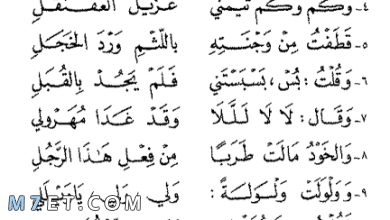 ٤- وَكَمْ وَكَمْ تَيَّمَنِي غُزَيِّلٌ العَقَنْقَلِ
٥- قَطَفْتُ مِنْ وَجْنَتِهِ بِاللَّثْمِ وَرْدَ الخَجَلِ
٦- وَقُلْتُ: بُسْ، بَسْبَسْتَنِي فَلَمْ يَجُدْ بِالقُبَلِ
٧- وَقَالَ: لَا لَا لَلَلَا وَقَدْ غَدَا مُهَرْوِلِي
٨- وَالخَوْدُ مَالَتْ طَرَبًا مِنْ فِعْلِ هَذَا الرَّجُلِ
٩- وَوَلْوَلَتْ وَلْوَلَةً: وَلِي وَلِي
M7ET.COM